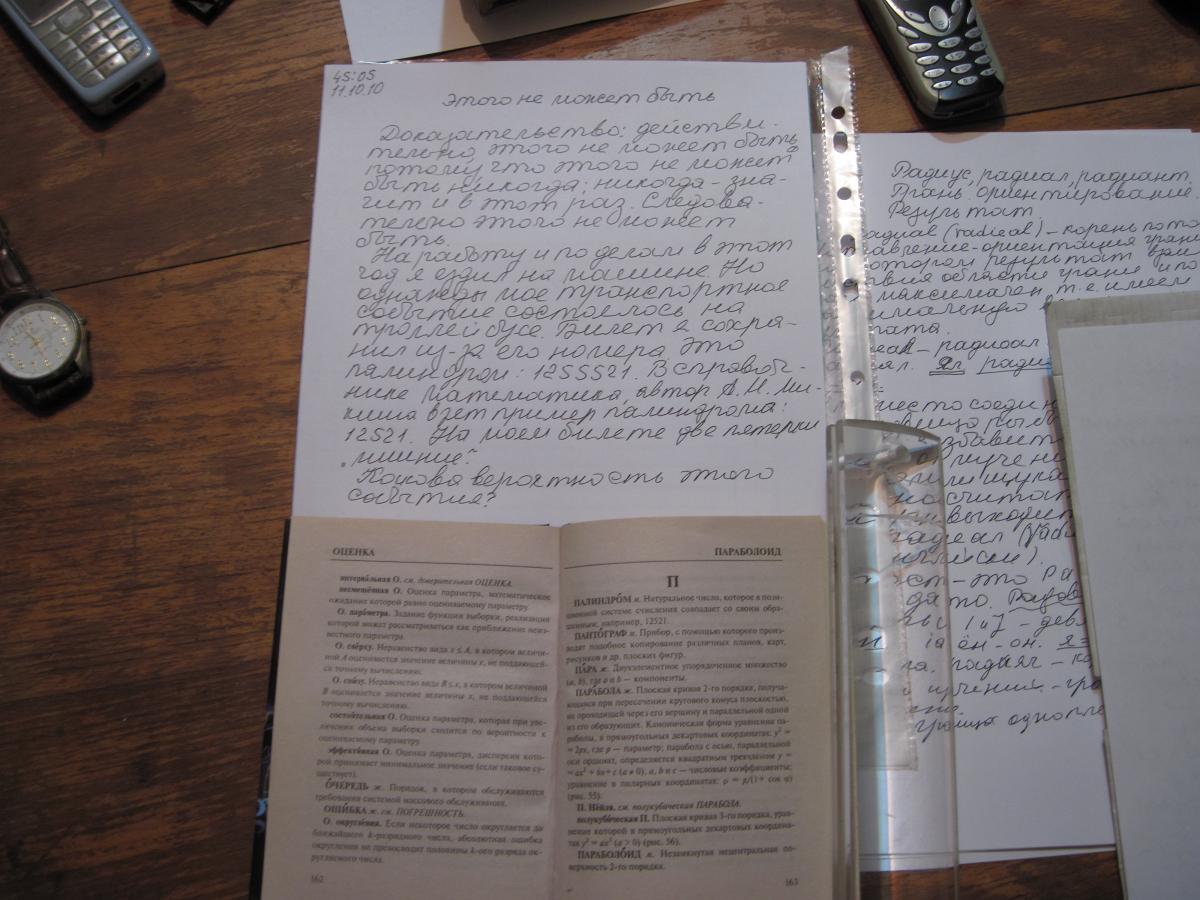 45:05
11.10.10
Этого не может быть
Доказательство: действи-
тельно, этого не может быть,
потому, что этого не может
быть никогда; никогда - зна-
чит и в этот раз. Следова-
тельно этого не может
быть.
На работу и по делам в этот
год я ездил на машине. Но
однажды мое транспортное
событие состоялось на
троллейбусе. Билет я сохра-
нил из-за его номера. Это
палиндром: 1255521. В справоч-
нике математика, автор А.Н. Ми-
киша взят пример палиндрома:
12521. На моем билете две пятерки
„лишние".
Какова вероятность этого
события?
Радиус, радиал, радиант.
Грань. Ориентирование.
Результат.
(radical) – корень
равление-ориентация грани
котором результат
области грани и по
максимален, т.е. имеет
– радиоал
радиа
место соедин
насчитат
радеал
радиал
граница
ОЦЕНКА
интервальная О. см. доверительная ОЦЕНКА.
несмещённая О. Оценка параметра, математическое
ожидание которой равно оцениваемому параметру.
О. параметра. Задание функции выборки, реализация
которой может рассматриваться как приближение неиз-
вестного параметра.
О. сверху. Неравенство вида x ≤ A, в котором величи-
ной A оценивается значение величины x, не поддающейся
точному вычислению.
О. снизу. Неравенство вида B ≤ x, в котором величиной
B оценивается значение величины x, не поддающейся
точному вычислению.
состоятельная О. Оценка параметра, которая при уве-
личении объема выборки сходится по вероятности к
оцениваемому параметру.
эффективная О. Оценка параметра, дисперсия кото-
рой принимает минимальное значение (если таковое су-
ществует).
О́ЧЕРЕДЬ ж. Порядок, в котором обслуживаются
требования системой массового обслуживания.
ОШИ́БКА ж. см. ПОГРЕШНОСТЬ.
О. округления. Если некоторое число округляется до
ближайшего k-разрядного числа, абсолютная ошибка
округления не превосходит половины k-ого разряда ок-
ругляемого числа.
162
ПАРАБОЛОИД
П
ПАЛИНДРО́М м. Натуральное число, которое в пози-
ционной системе счисления совпадает со своим обра-
щенным; например, 12521.
ПАНТО́ГРАФ м. Прибор, с помощью которого произ-
водят подобное копирование различных планов, карт,
рисунков и др. плоских фигур.
ПА́РА ж. Двухэлементное упорядоченное множество
(a, b), где a и b — компоненты.
ПАРА́БОЛА ж. Плоская кривая 2-го порядка, получа-
ющаяся при пересечении кругового конуса плоскостью,
не проходящей через его вершину и параллельной одной
из его образующих. Каноническая форма уравнения па-
раболы, в прямоугольных декартовых координатах: y² =
= 2px, где p — параметр; парабола с осью, параллельной
оси ординат, определяется квадратным трехчленом y =
= ax² + bx + c (a ≠ 0), a, b и c — числовые коэффициенты;
уравнение в полярных координатах: ρ = p/(1+ cos φ)
(рис. 55).
П. Не́йля, см. полукубическая ПАРАБОЛА.
полукуби́ческая П. Плоская кривая 3-го порядка, урав-
нение которой в прямоугольных декартовых координа-
тах y² = ax³ (a > 0) (рис. 56).
ПАРАБОЛО́ИД м. Незамкнутая нецентральная по-
верхность 2-го порядка.
163